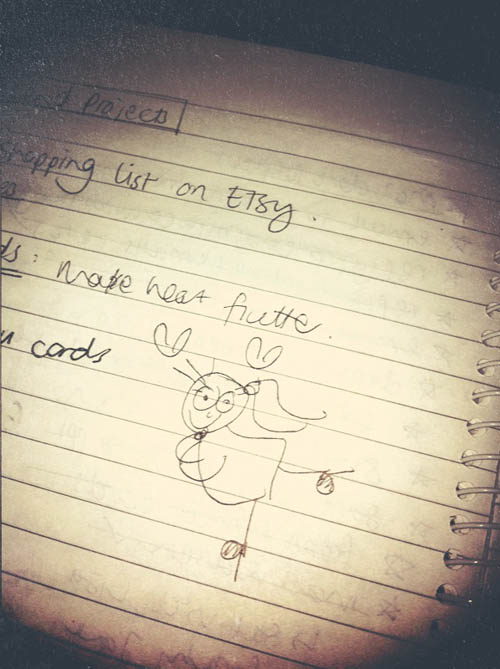 projects
shopping list on ETsy.
: make heat flutte.
cards